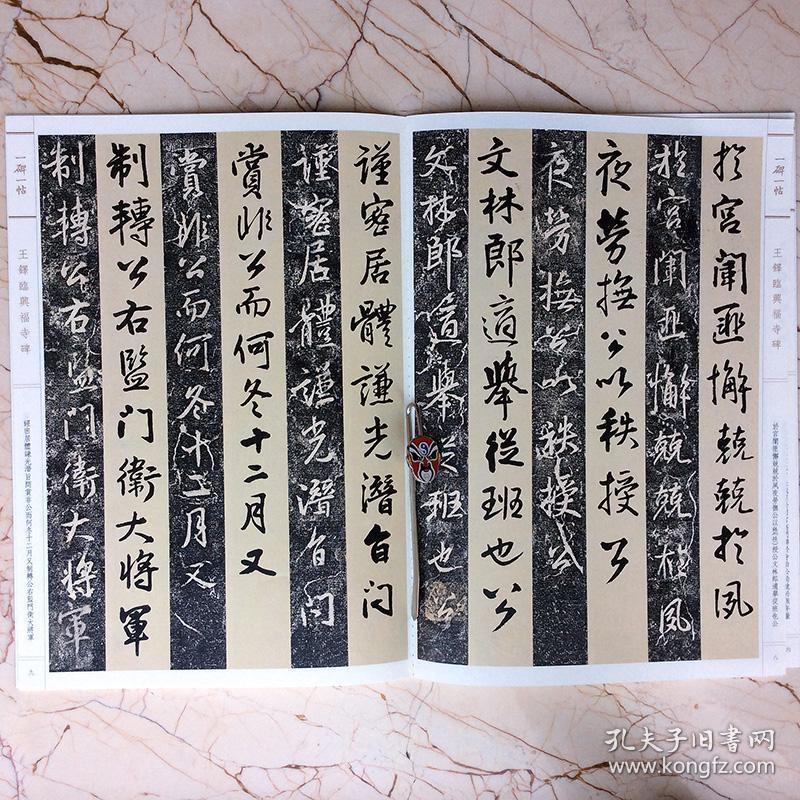 一碑一帖
王鐸臨興福寺碑
於宮闈匪懈兢兢於夙
於宮闈匪懈兢兢於夙
夜勞撫公以秩授公
夜勞撫公以秩授公
文林郎適舉從班也公
文林郎適舉從班也公
八
謹密居體謙光潛自问
謹密居體謙光潛自问
賞非公而何冬十二月又
賞非公而何冬十二月又
制轉公右監门衛大将軍
制轉公右監门衛大将軍
一碑一帖
王鐸臨興福寺碑
九
孔夫子旧书网
www.kongfz.com